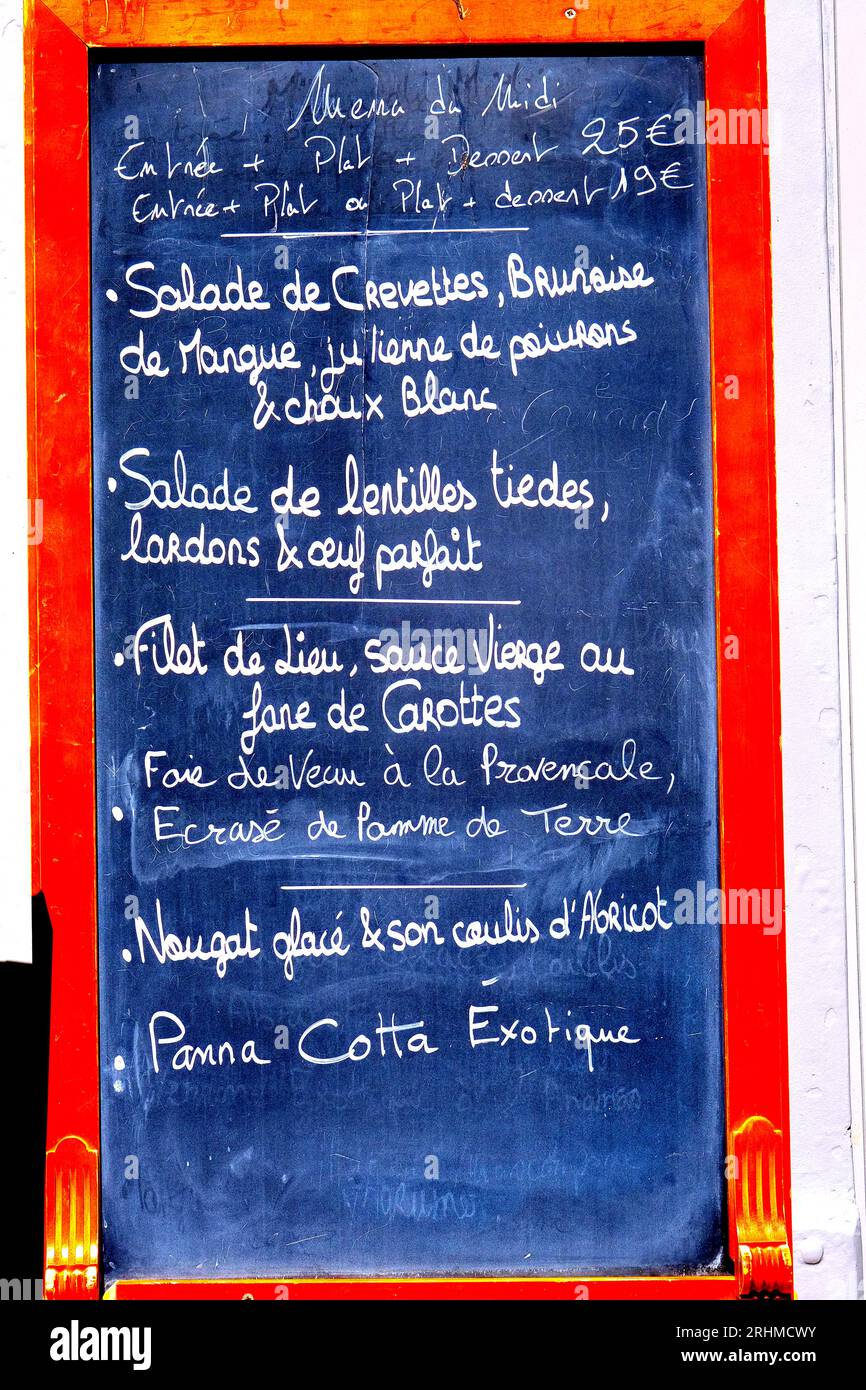 Menu du Midi
Entrée + Plat + Dessert 25€
Entrée + Plat ou Plat + dessert 19€
• Salade de Crevettes, Brunoise
de Mangue, julienne de poivrons
& choux Blanc
• Salade de lentilles tiedes,
lardons & œuf parfait
• Filet de Lieu, sauce Vierge au
fane de Carottes
Foie de Veau à la Provençale,
• Ecrasé de Pomme de Terre
• Nougat glacé & son coulis d'Abricot
• Panna Cotta Éxotique
alamy
Image ID: 2RHMCWY
www.alamy.com